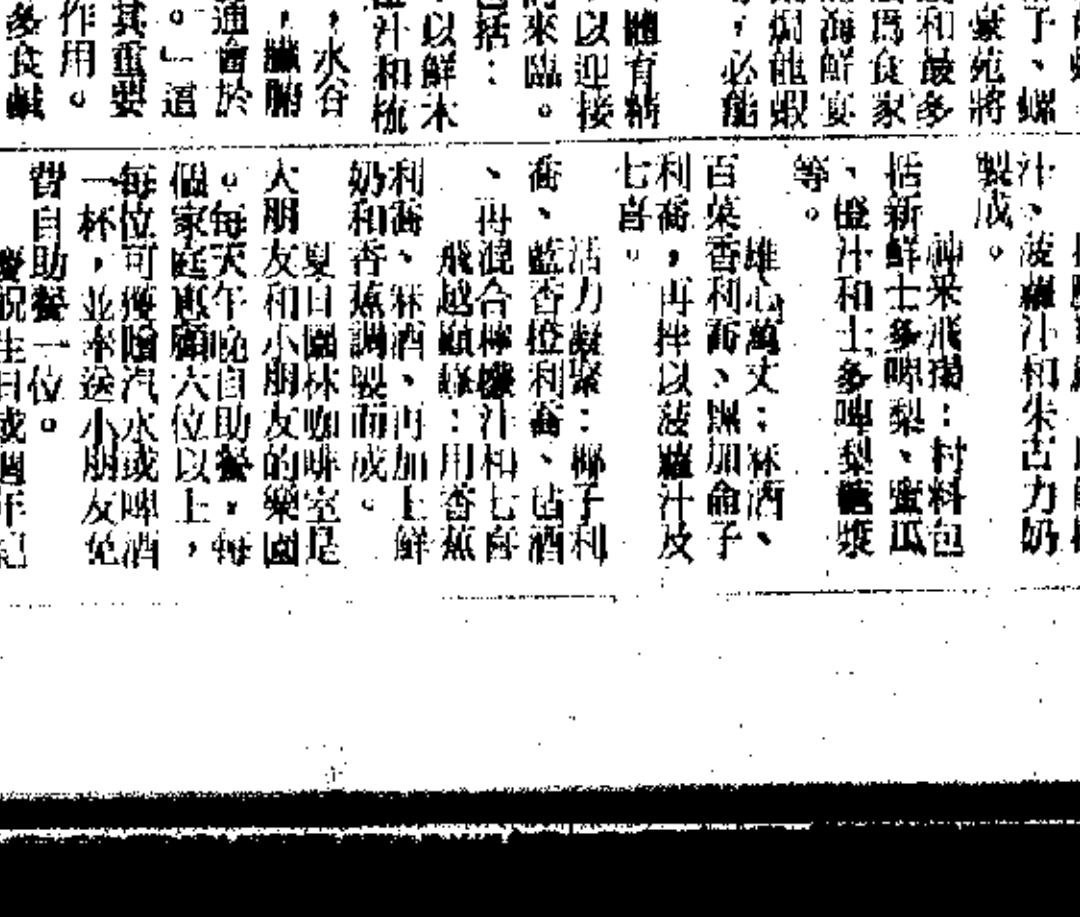 子、螺
豪苑將
和最多
爲食家
海鮮宴
焗龍蝦
,必能
體有精
以迎接
來臨。
包括:
以鮮木
汁和梳
,水谷
,臟腑
通會於
。」這
其重要
作用。
多食鹹
汁、菠蘿汁和朱古力奶
製成。
神采飛揚:材料包
括新鮮士多啤梨、蜜瓜
、橙汁和士多啤梨糖漿
等。
雄心萬丈:冧酒、
百菓香利喬、黑加侖子
利喬,再拌以菠蘿汁及
七喜。
活力凝聚:椰子利
喬、藍香橙利喬、冧酒
、再混合檸檬汁和七喜
飛越巔峰:用香蕉
利喬、冧酒、再加上鮮
奶和香蕉調製而成。
夏日園林咖啡室是
大朋友和小朋友的樂園
。每天午晚自助餐,每
個家庭惠顧六位以上,
每位可獲贈汽水或啤酒
一杯,並奉送小朋友免
費自助餐一位。
慶祝生日或週年紀